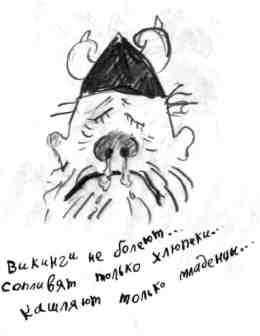 Викинги не болеют...
Сопливят только хлюпики...
Кашляют только младенцы...